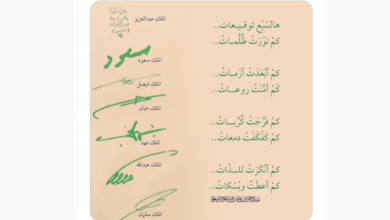 هالسَّبْع توقـيـعات..
كمْ نوّرَتْ ظُلْمـات..
كمْ أبْعَدَتْ أزمـاتْ..
كَمْ أمّنَتْ روعـاتْ..
كمْ فرَّجَتْ كُرُبـاتْ..
كمْ كَفْكَفَتْ دمعاتْ..
كمْ أنكَرَتْ للـذّاتْ..
كمْ أعطَتْ وبْسكاتْ..
الملك عبدالعزيز
الملك سعود
الملك فيصل
الملك خالد
الملك فهد
الملك عبدالله
الملك سلمان